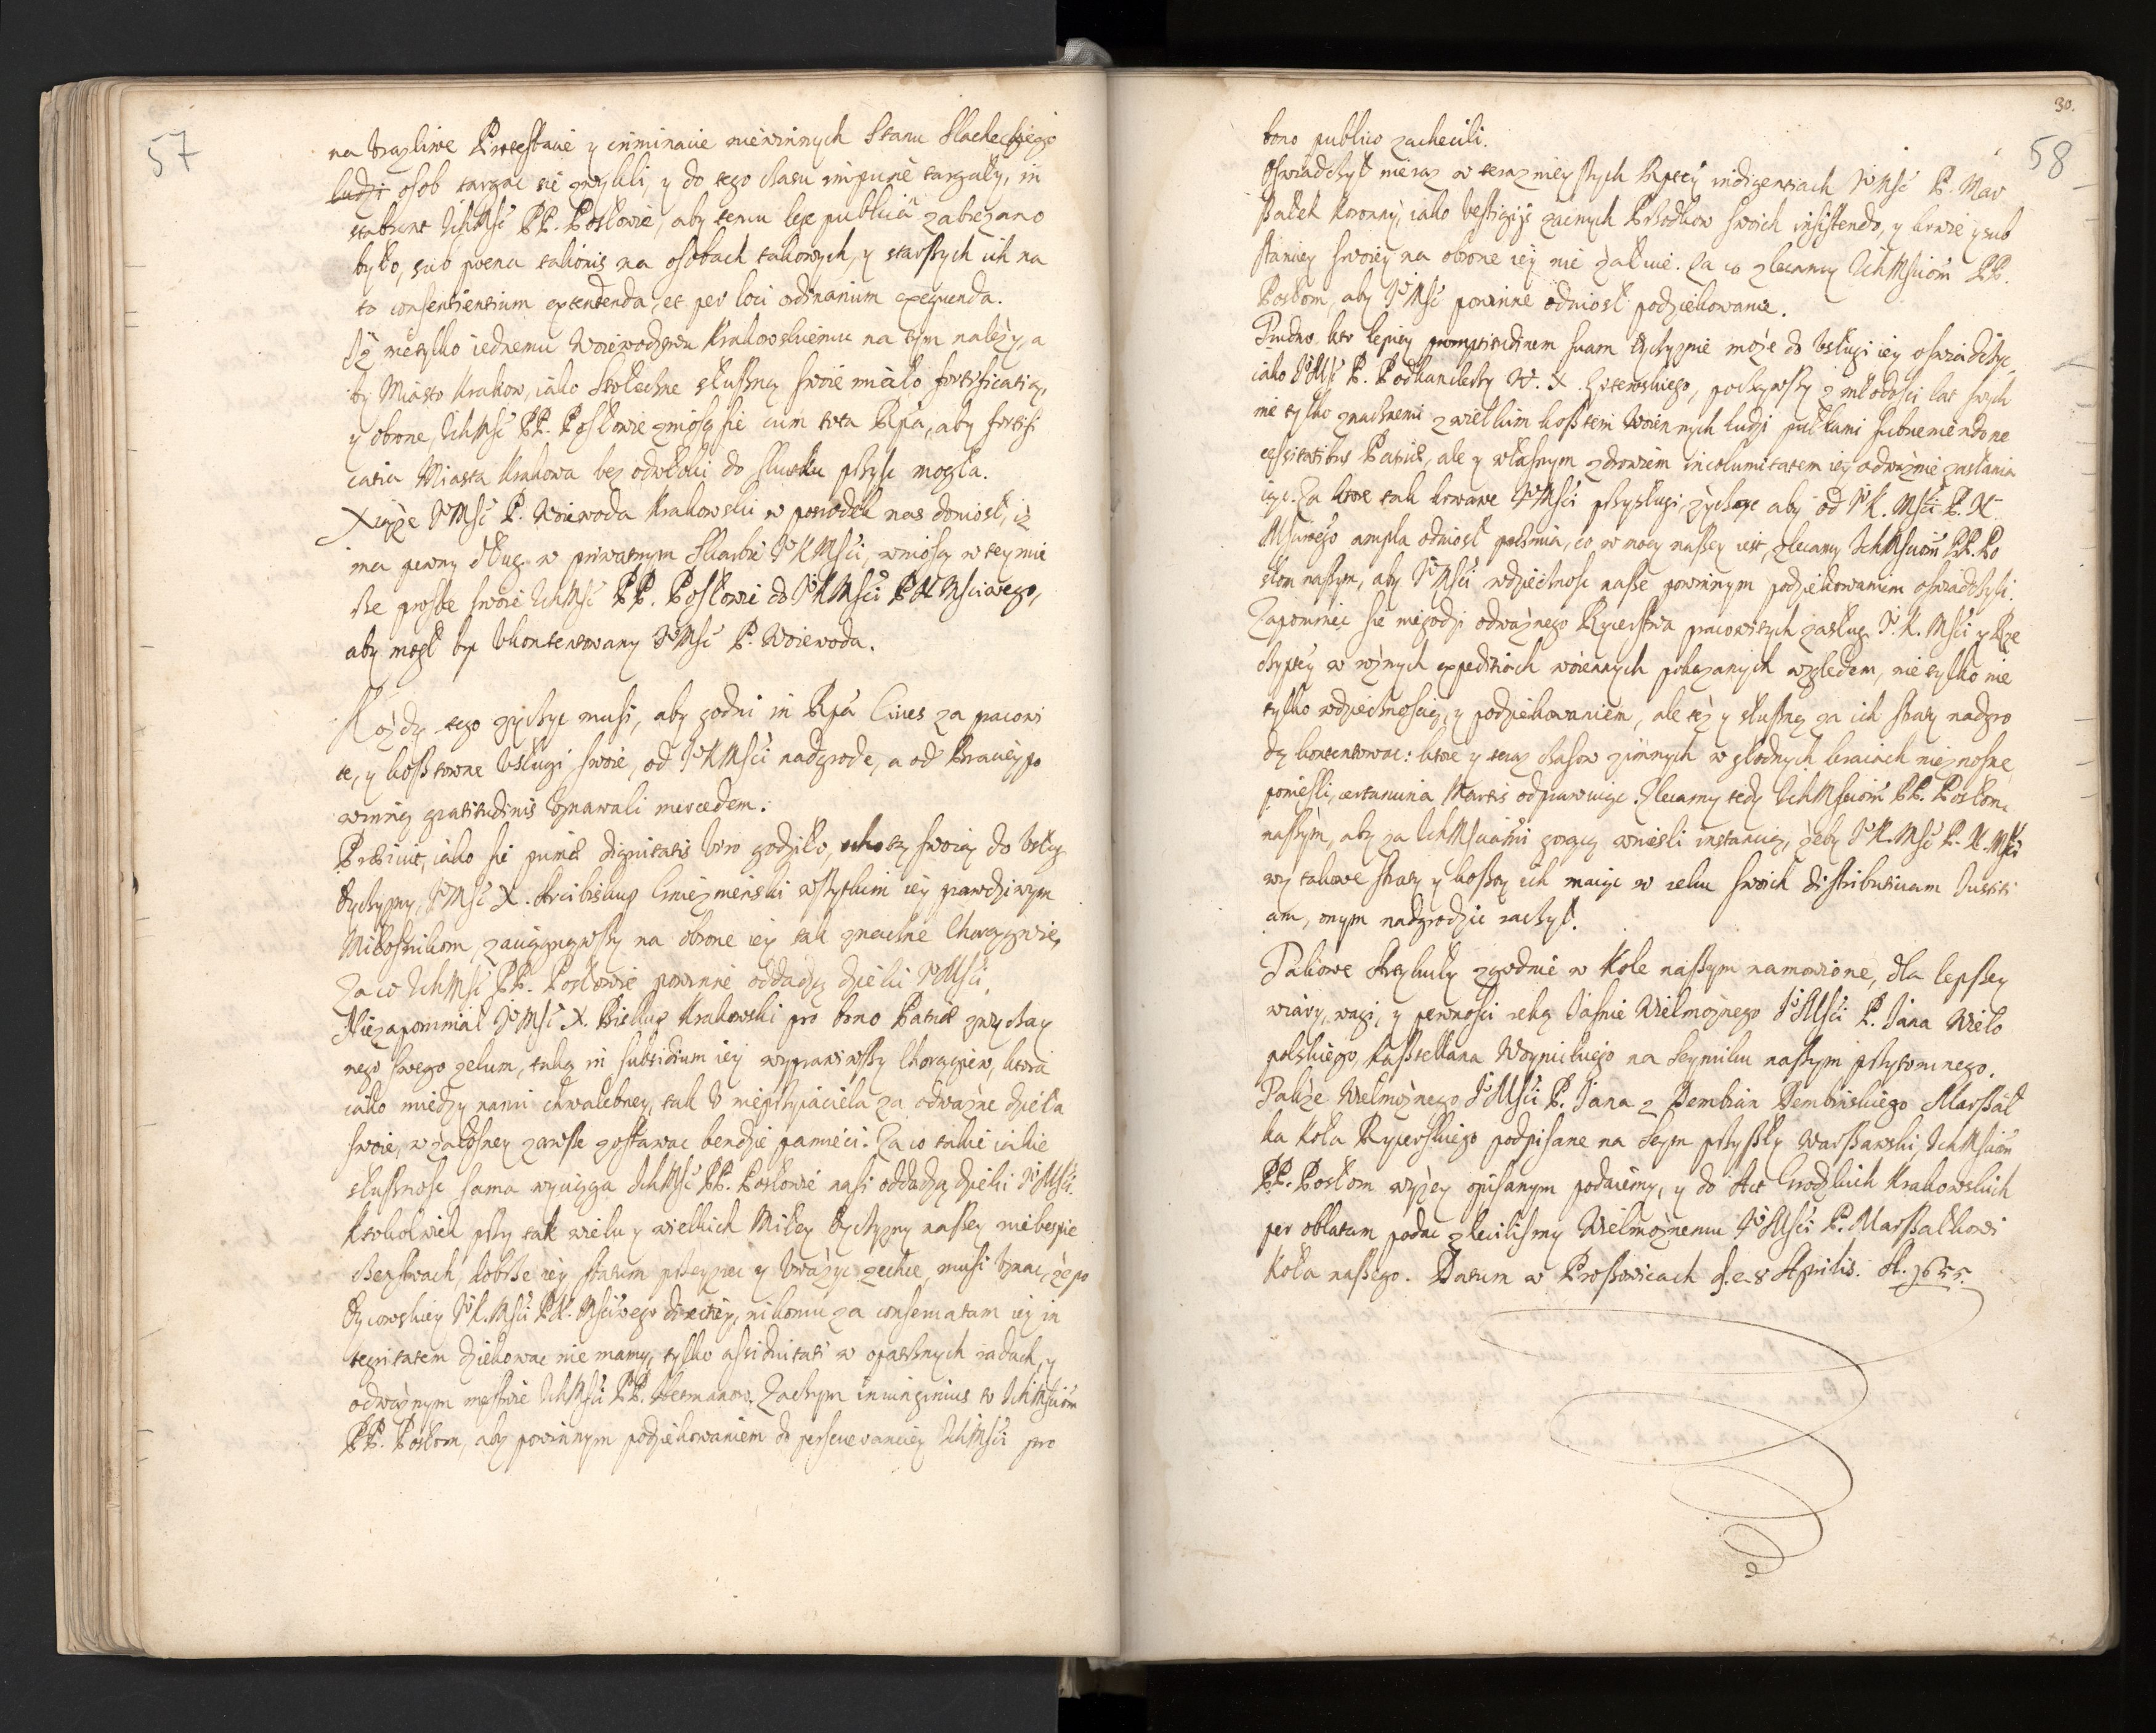 57
na vrazliwe Protestacie y criminacie niewinnych Stanu Slacheckiego
ludzi osob targac sie zwykli, y do tego czasu impune targały, in
stabunt IchMsc PP. Posłowie, aby temu lege publica zabiezano
było, sub poena talionis na osobach takowych, y starszych ich na
to consentientium extendenda, et per loci ordinarium exequenda.
Iż nietylko iednemu Woiewodztwu Krakowskiemu na tym należy, a
by Miasto Krakow, iako Stołeczne słuszną swoie miało fortificatią,
y obrone, IchMsc PP. Posłowie zniosą sie cum tota Rpa, aby fortifi
catia Miasta Krakowa bez odwłoki do skutku przysc mogła.
Xiąże JoMsc P. Woiewoda Krakowski w posrodek nas doniosł, iż
ma pewny dług w priwatnym Skarbie JoKMsci, wniosą w tey mie
rze prosbe swoie IchMsc PP. Posłowie do JoKMsci PNMsciwego,
aby mogł byc ukontentowany JoMsc P. Woiewoda.
Kożdy tego życzyc musi, aby godni in Rpa Cives za pracowi
te, y kosztowne vsługi swoie, od JoKMsci nadgrode, a od Braciey po
winną gratitudinis vznawali mercedem.
Przscił, iako sie punct dignitatis viro godziło, ochotą swoią do vsług
Oyczyzny, JoMsc X. Arcibiskup Gnieznienski wszytkim iey prawdziwym
Miłosnikom, zaciągnąwszy na obrone iey tak znaczne Chorągwie,
Za co IchMsc PP. Posłowie powinne oddadzą dzieki JoMsci.
Niezapomniał JoMsc X. Biskup Krakowski pro bono Patriæ zwyczay
nego swego zelum, taką in subsidium iey wyprawiwszy Chorągiew, ktora
iako miedzy nami chwalebney, tak v nieprzyiaciela za odważne dzieła
swoie, w żałosney zawsze zostawac bendzie pamieci. Za co takie iakie
słusznosc sama wyciąga IchMsc PP. Posłowie nasi oddadzą dzieki JoMsci.
Ktokolwiek przy tak wielu y wielkich Miłey Oyczyzny naszey niebespie
czenstwach, dobrze iey statum przeyzrec y vważyc zechce, musi vznac, że po
Oycowskiey JoK.Msci PN.Msciwego direktiey, nikomu za conservatam iey in
tegritatem dziekowac nie mamy, tylko assiduitati w opatrznych radach, y
odważnym męstwie IchMsci PP. Hetmanow. Zaczym iniungimus to IchMsciom
PP. Posłom, aby powinnym podziekowaniem do perseverantiey IchMsci pro
30.
58
bono publico zachecili.
Oswiadczył nieraz w teraznieyszych Rptey indigentiach JoMsc P. Mar
szałek Koronny, iako vestigijs zacnych Przodkow swoich insistendo, y krwie y sub
stanciey swoiey na obrone iey nie żałuie. Za co zlecamy IchMsciom PP.
Posłom, aby JoMsc powinne odniosł podziekowanie.
Trudno kto lepiey promptitudinem suam Oyczyznie może do vsługi iey oswiadczyc,
iako JoMsc P. Podkanclerzy W. X. Litewskiego, począwszy z młodosci lat swych
nie tylko znacznemi z wielkim kosztem woiennych ludzi pułkami subveniendo ne
cessitatibus Patriæ, ale y własnym zdrowiem incolumitatem iey odważnie zasłania
iąc. Za ktore tak krwawe JoMsci przysługi, życząc aby od JoK. Msci P. N.
Msciwego ampla odniosł præmia, co w mocy naszey iest, zlecamy IchMsciom PP. Po
słom naszym, aby JoMsci wdziecznosc nasze powinnym podziekowaniem oswiadczyli.
Zapomniec sie niegodzi odważnego Rycerstwa pracowitych zasług. J. K. Msci y Rze
czyptey w rożnych expeditiach woiennych pokazanych względem, nie tylko nie
tylko wdziecznoscią, y podziekowaniem, ale też y słuszną za ich straty nadgro
dą kontentowac: ktore y teraz czasow zimnych w głodnych kraiach nieznosne
poniesli, certamina Martis odprawuiąc. Zlecamy tedy IchMsciom PP. Posłom
naszym, aby za IchMsciami gorącą wniesli instancią, żeby JoK.Msc P.N.Msci
wy takowe straty y koszty ich maiąc w reku swoich distributivam Iustiti
am, onym nadgrodzic raczył.
Takowe Artykuły zgodnie w Kole naszym namowione, dla lepszey
wiary, wagi, y pewnosci ręką Jasnie Wielmożnego JoMsci P. Jana Wielo
polskiego, Kasztellana Woynickiego na Seymiku naszym przytomnego.
Także Wielmożnego JoMsci P. Jana z Dembian Dembinskiego Marszał
ka Koła Rycerskiego podpisane na Seym przyszły Warszawski, IchMsciom
PP. Posłom wyżey opisanym podaiemy, y do Act Grodzkich Krakowskich
per oblatam podac zlecilismy Wielmożnemu JoMsci P. Marszałkowi
Koła naszego. Datum w Proszowicach d. 28 Aprilis. A. 1655.